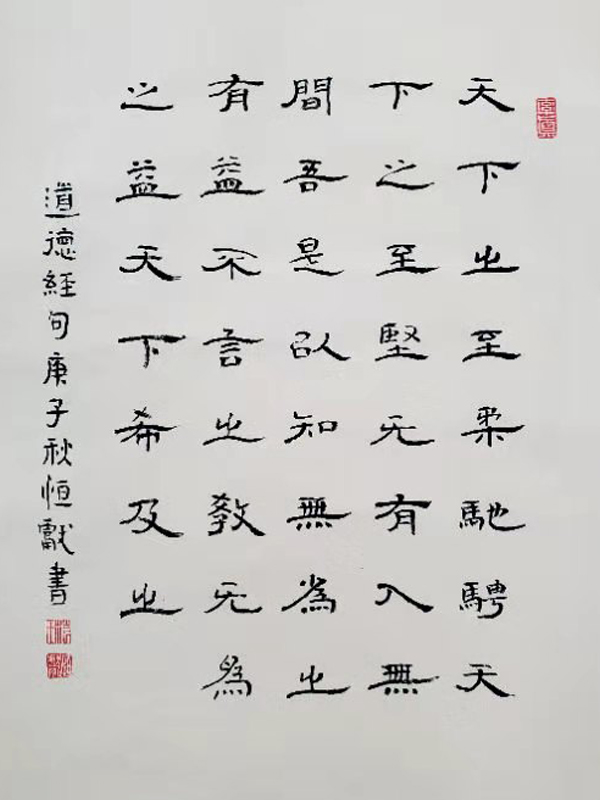 天下之至柔馳騁天
下之至堅无有入無
間吾是以知無為之
有益不言之教无為
之益天下希及之
道德經句庚子秋恒獻書